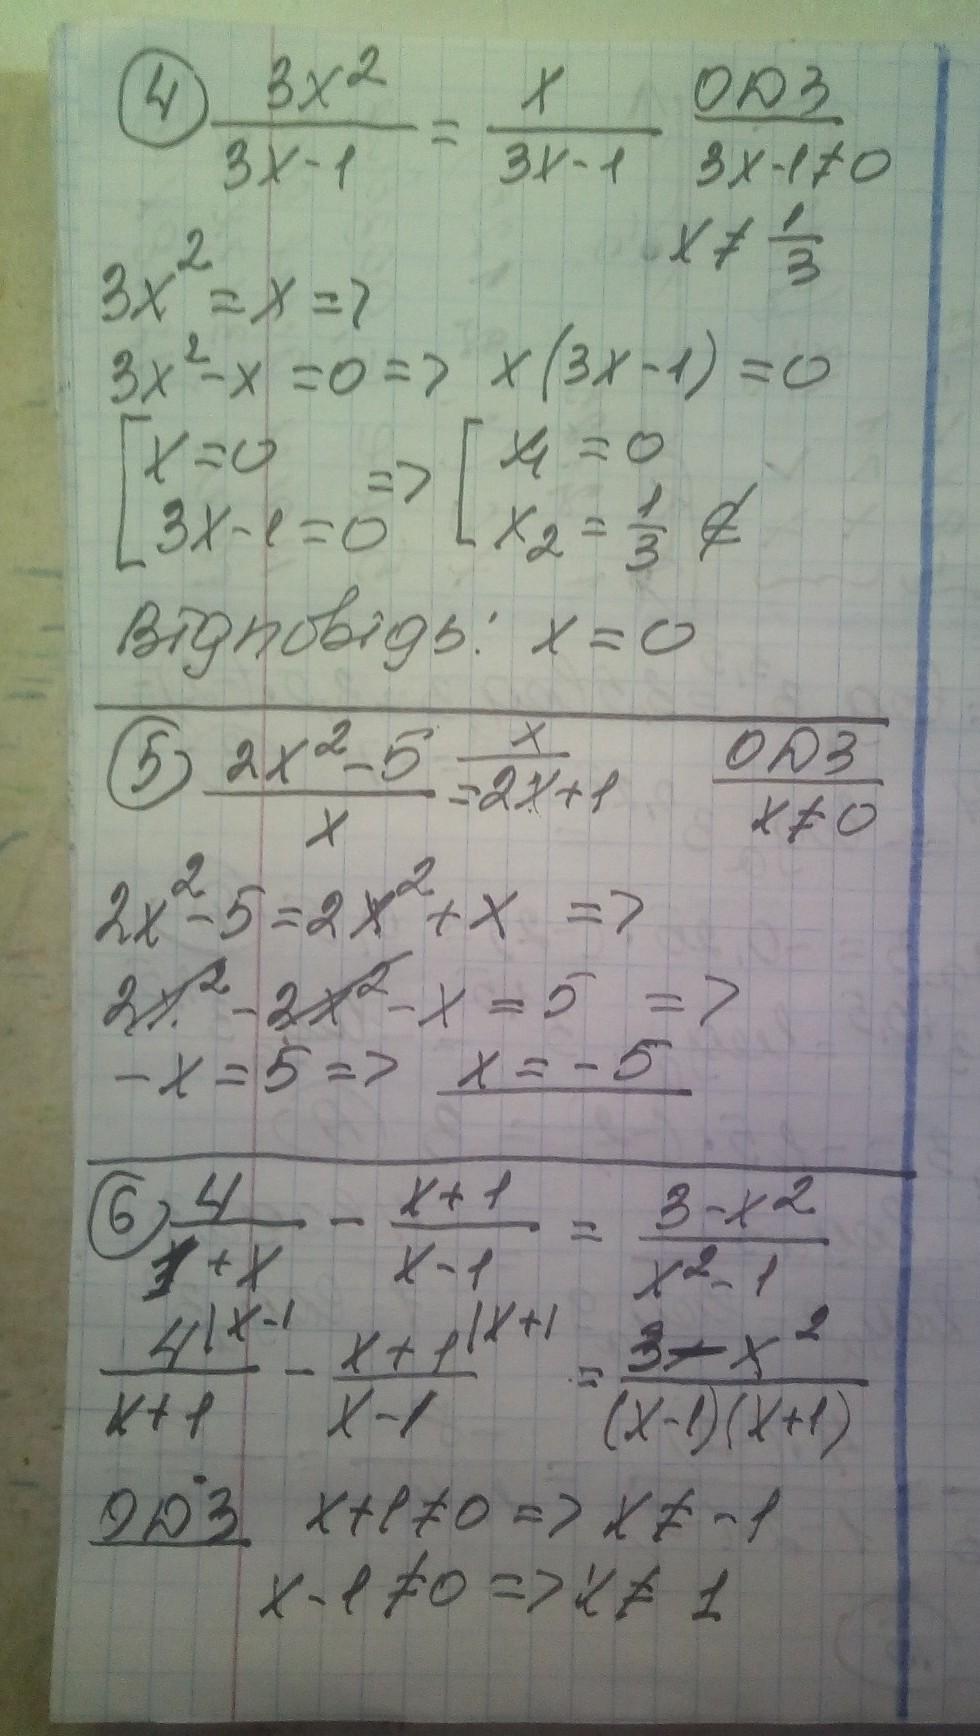 4 3x²/(3x-1) = x/(3x-1) ОДЗ
3x-1≠0
x ≠ 1/3
3x² = x =>
3x² - x = 0 => x(3x-1) = 0
[ x = 0 => [ x₁ = 0
3x-1 = 0 x₂ = 1/3 ∉
Відповідь: x = 0
5) (2x²-5)/x = 2x+1 x ОДЗ
x≠0
2x² - 5 = 2x² + x =>
2x² - 2x² - x = 5 =>
-x = 5 => x = -5
6) 4/(1+x) - (x+1)/(x-1) = (3-x²)/(x²-1)
4|x-1/(x+1) - x+1|x+1/(x-1) = (3-x²)/((x-1)(x+1))
ОДЗ x+1≠0 => x≠ -1
x-1≠0 => x≠ 1